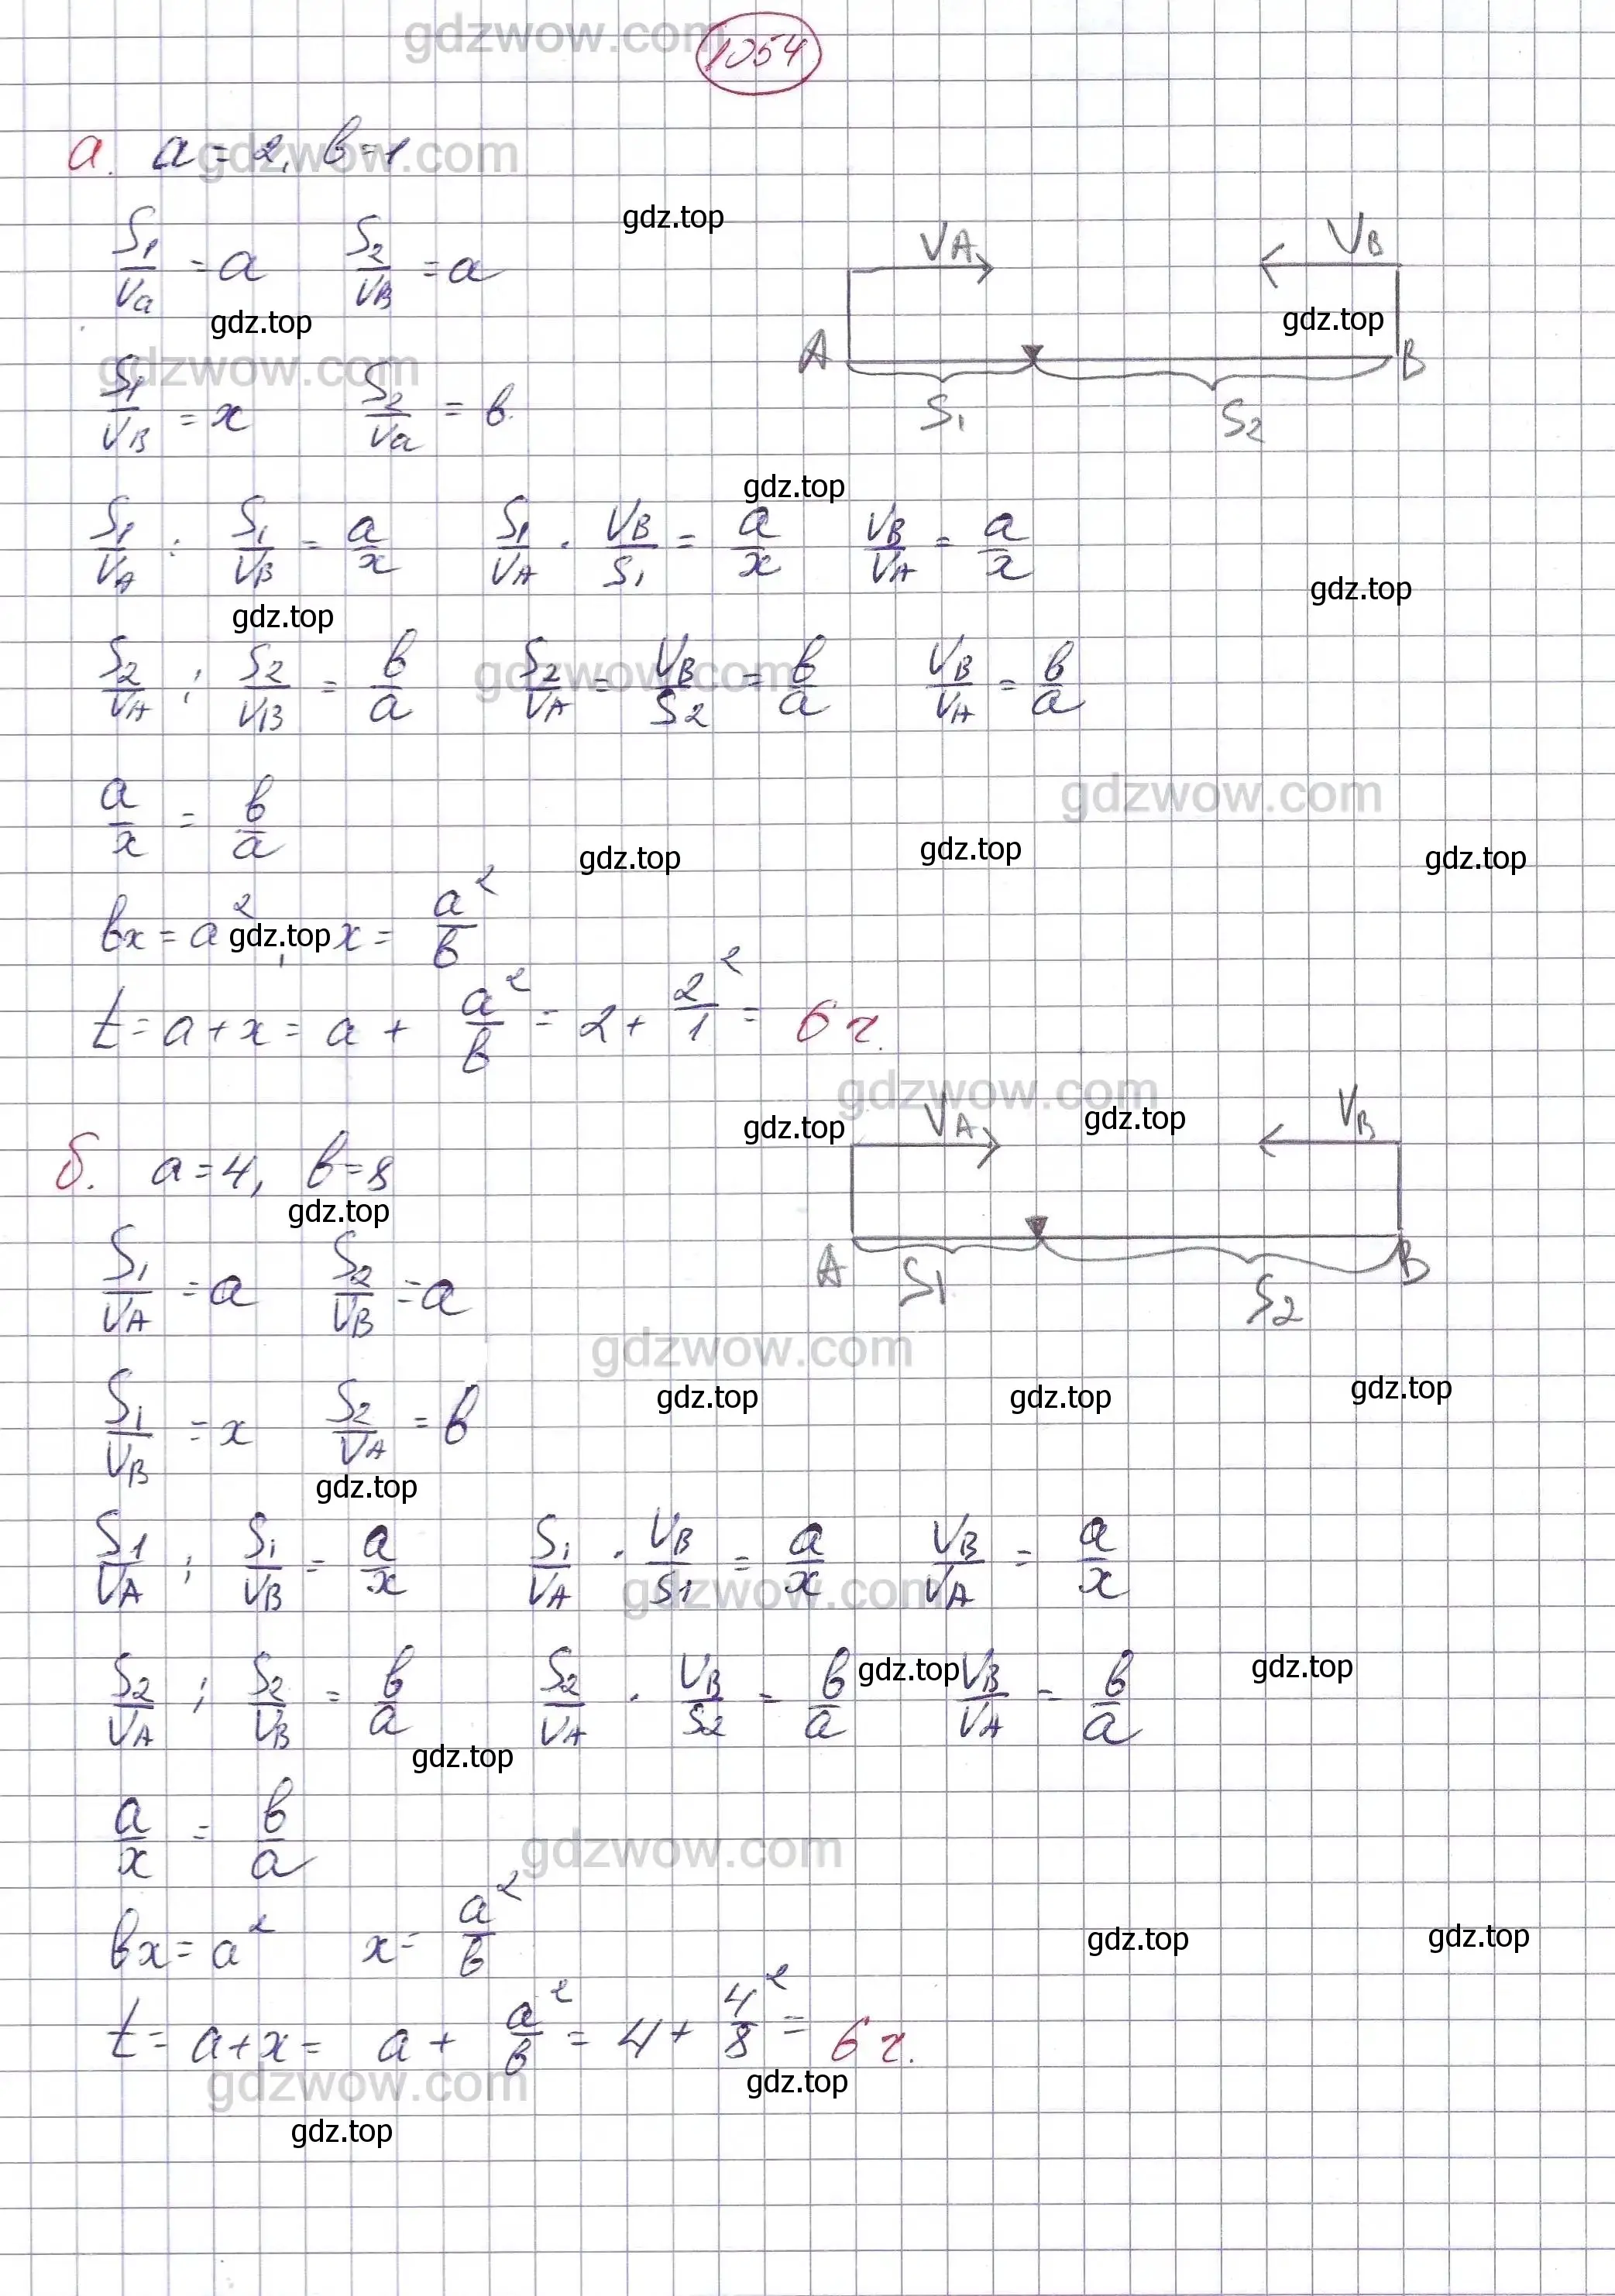 gdzwow.com
1054
а. a = 2, b = 1
gdzwow.com
gdz.top
S1/Va = a S2/VB = a
VA VB
gdz.top gdz.top
A B
S1 S2
gdzwow.com
S1/VB = x S2/Va = b.
gdz.top
S1/VA : S1/VB = a/x S1/VA · VB/S1 = a/x VB/VA = a/x
gdz.top gdz.top
S2/VA : S2/VB = b/a S2/VA = VB/S2 = b/a VB/VA = b/a
gdzwow.com
gdzwow.com
a/x = b/a
gdz.top gdz.top gdz.top
bx = a², x = a²/b
gdz.top
t = a + x = a + a²/b = 2 + 2²/1 = 6 ч.
gdzwow.com
gdz.top gdz.top
VA VB
б. a = 4, b = 8
gdz.top
S1/VA = a S2/VB = a
A B
S1 S2
gdzwow.com
gdz.top gdz.top gdz.top
S1/VB = x S2/VA = b
gdz.top
S1/VA : S1/VB = a/x S1/VA · VB/S1 = a/x VB/VA = a/x
gdzwow.com
S2/VA : S2/VB = b/a S2/VA · VB/S2 = b/a VB/VA = b/a
gdz.top gdz.top
gdz.top
a/x = b/a
gdzwow.com
bx = a² x = a²/b
gdz.top gdz.top
t = a + x = a + a²/b = 4 + 4²/8 = 6 ч.
gdzwow.com
gdz.top
gdz.top